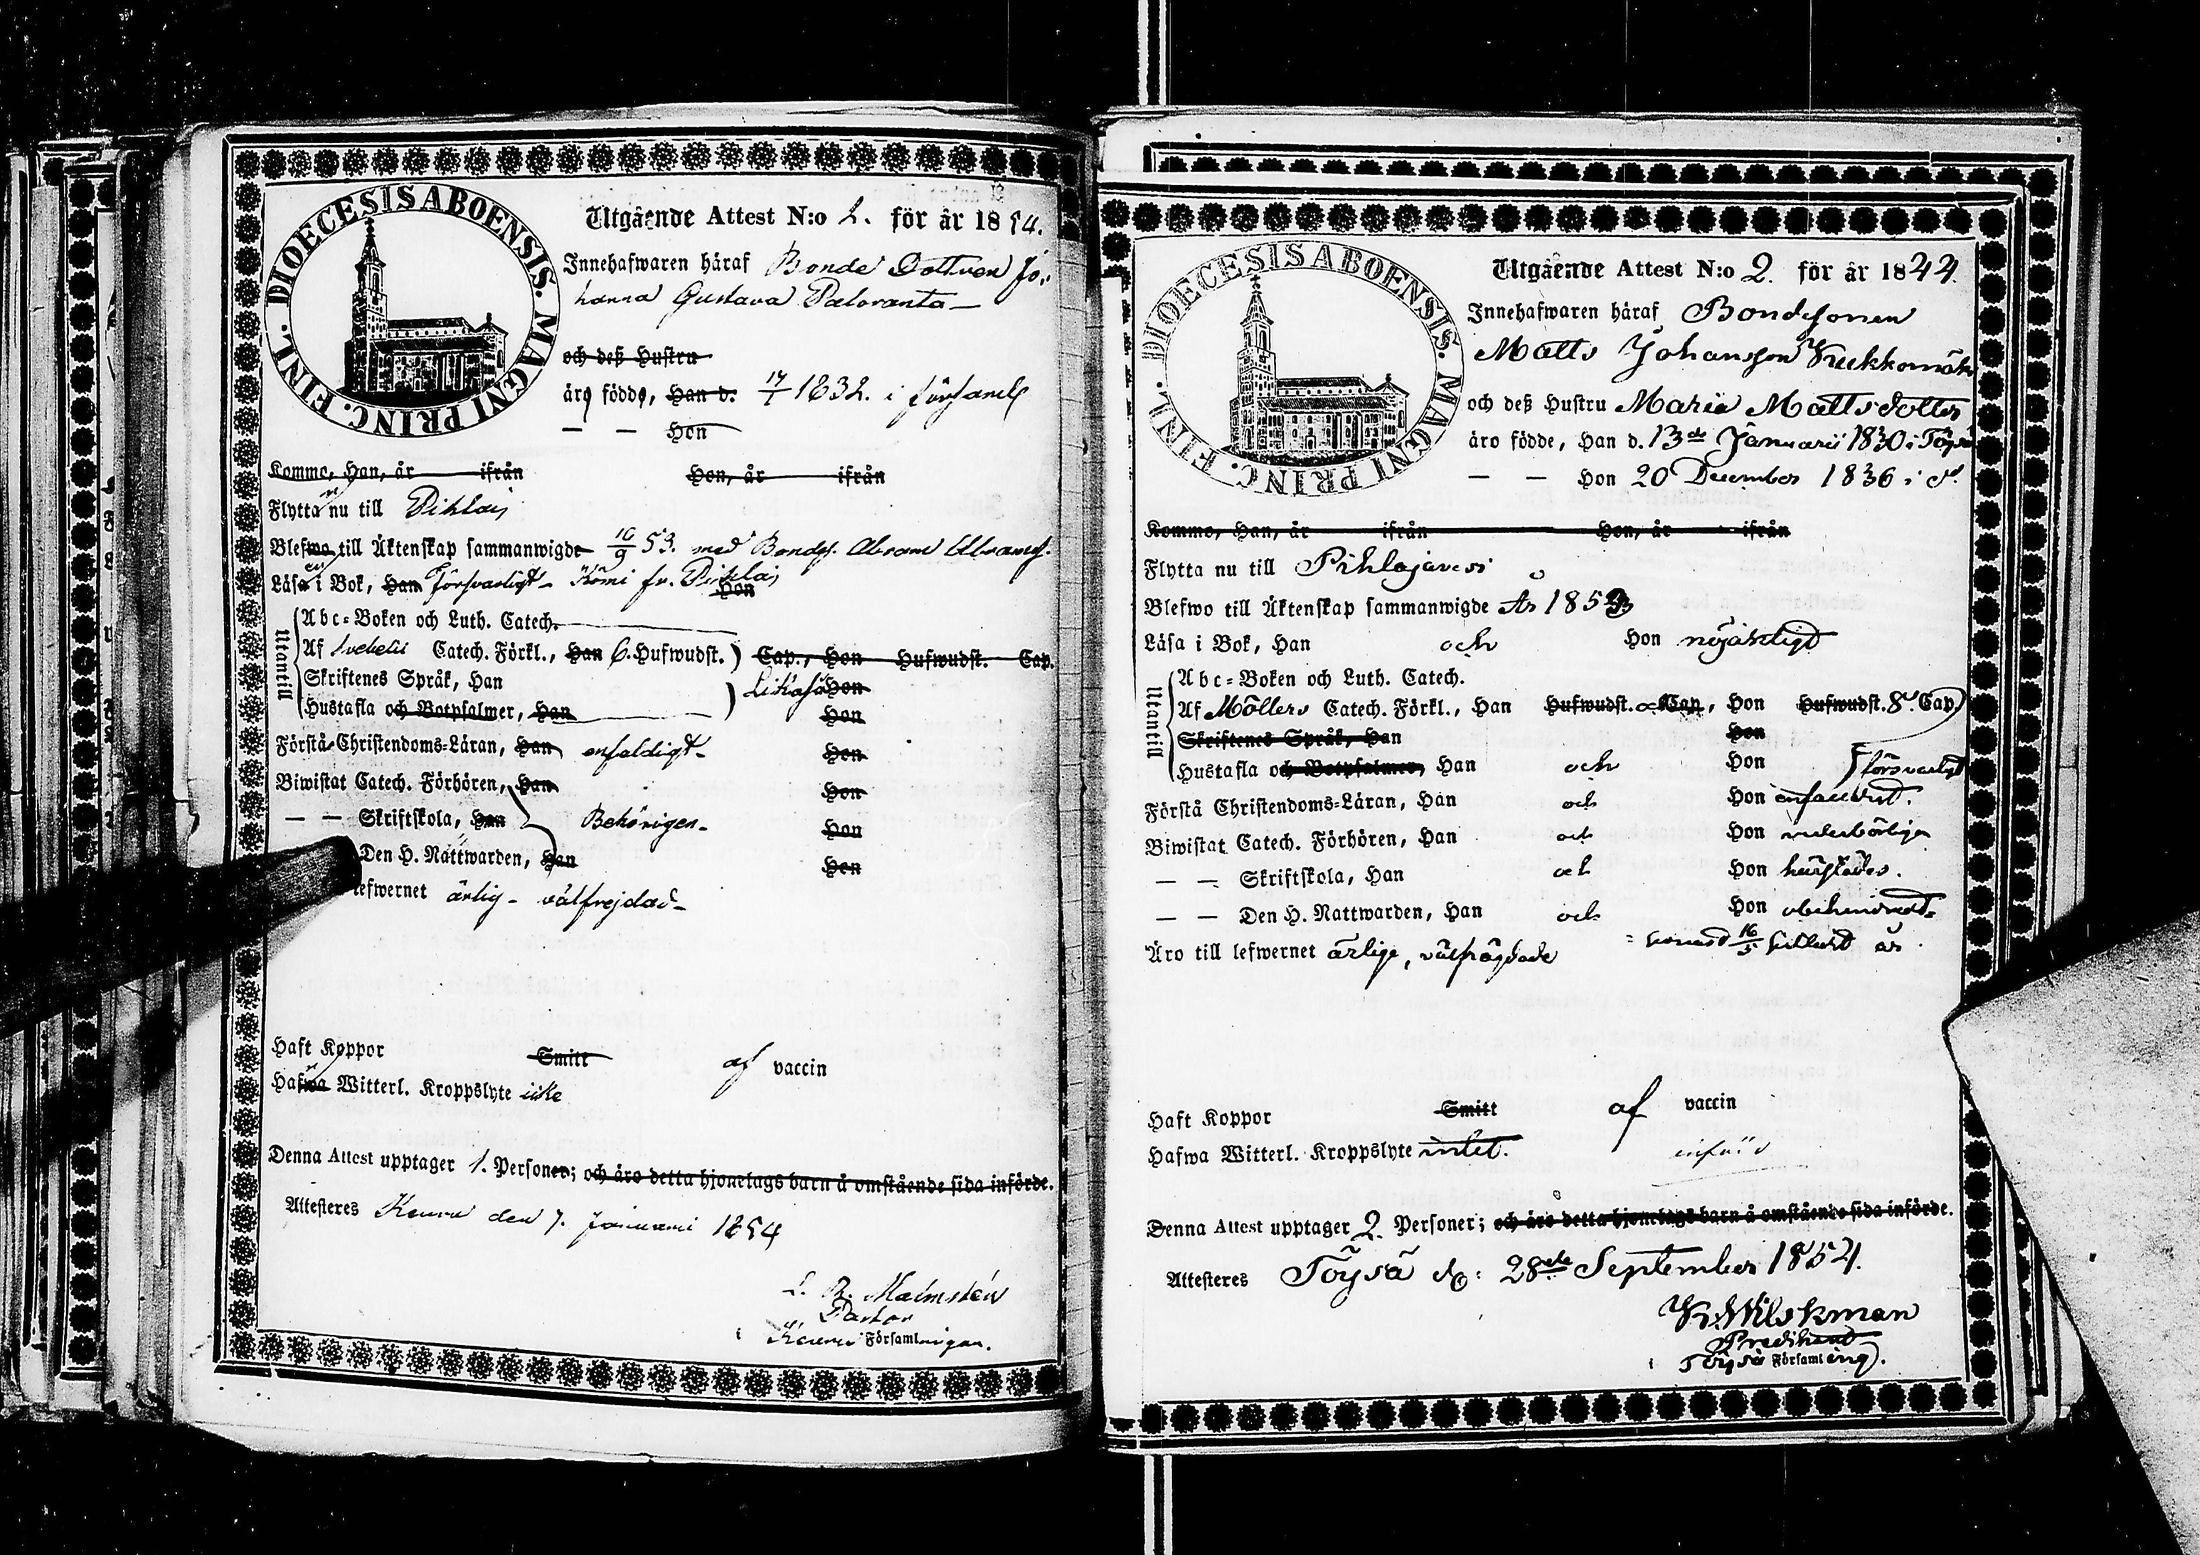 DIOECESIS ABOENSIS. MAGNI PRINC. FINL.
Utgående Attest N:o 2. för år 1854.
Innehafwaren häraf Bonde Dottren Jo-
hanna Gustava Paloranta
och deß Hustru
äro födde, Han d. 17/1 1832. i församl
— — Hon
Komme, Han, år ifrån Hon, år ifrån
Flytta nu till Pihlaj
Blefwo till Äktenskap sammanwigde 16/9 53. med Bondes. Abram Abramss.
Läsa i Bok, Han försvarligt Kömi fr. Pihlaj Hon
Utantill
Abc-Boken och Luth. Catech.
Af Svebelii Catech. Förkl., Han 6. Hufwudst. Cap., Hon Hufwudst. Cap.
Skriftenes Språk, Han likaså Hon
Hustafla och Botpsalmer, Han Hon
Förstå Christendoms-Läran, Han enfaldigt Hon
Biwistat Catech. Förhören, Han Hon
— — Skriftskola, Han Behörigen Hon
Den H. Nattwarden, Han Hon
lefwernet ärlig välfrejdad
Haft Koppor Smitt af vaccin
Hafwa Witterl. Kroppslyte icke
Denna Attest upptager 1. Personer; och äro detta hjonelags barn å omstående sida införde.
Attesteres Keuru den 7. Januari 1854
L. B. Malmstén
Pastor
i Keuru Församlingen.
DIOECESIS ABOENSIS. MAGNI PRINC. FINL.
Utgående Attest N:o 2. för år 1844.
Innehafwaren häraf Bondesonen
Matts Johansson Kukkomäki
och deß Hustru Maria Mattsdotter
äro födde, Han d. 13de Januarii 1830 i Töysä
— — Hon 20 December 1836 i d:o
Komme, Han, år ifrån Hon, år ifrån
Flytta nu till Pihlajavesi
Blefwo till Äktenskap sammanwigde År 1853
Läsa i Bok, Han och Hon nöjaktigt
Utantill
Abc-Boken och Luth. Catech.
Af Möllers Catech. Förkl., Han Hufwudst. och Cap., Hon Hufwudst. 8 Cap.
Skriftenes Språk, Han Hon
Hustafla och Botpsalmer, Han och Hon försvarligt
Förstå Christendoms-Läran, Han och Hon enfaldigt.
Biwistat Catech. Förhören, Han och Hon vederbörligen
— — Skriftskola, Han och Hon
— — Den H. Nattwarden, Han och Hon obehindradt
senast 16/5 sistledt år
Äro till lefwernet ärlige, välfrägdade
Haft Koppor Smitt af vaccin
Hafwa Witterl. Kroppslyte intet.
Denna Attest upptager 2. Personer; och äro detta hjonelags barn å omstående sida införde.
Attesteres Töysä d. 28de September 1854.
K. Wilskman
Predikant
i Töysä Församling.